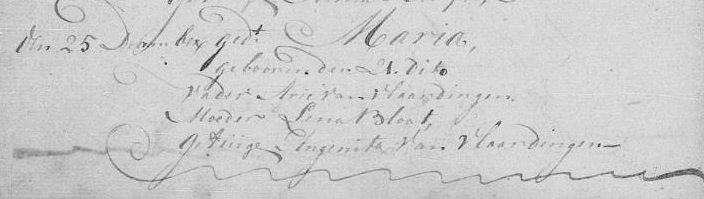 den 25 December ged.t Maria,
gebooren den 21. dito
vader Arie van Vlaardingen
Moeder Lena Bloat,
Getuige Ingenita van Vlaardingen